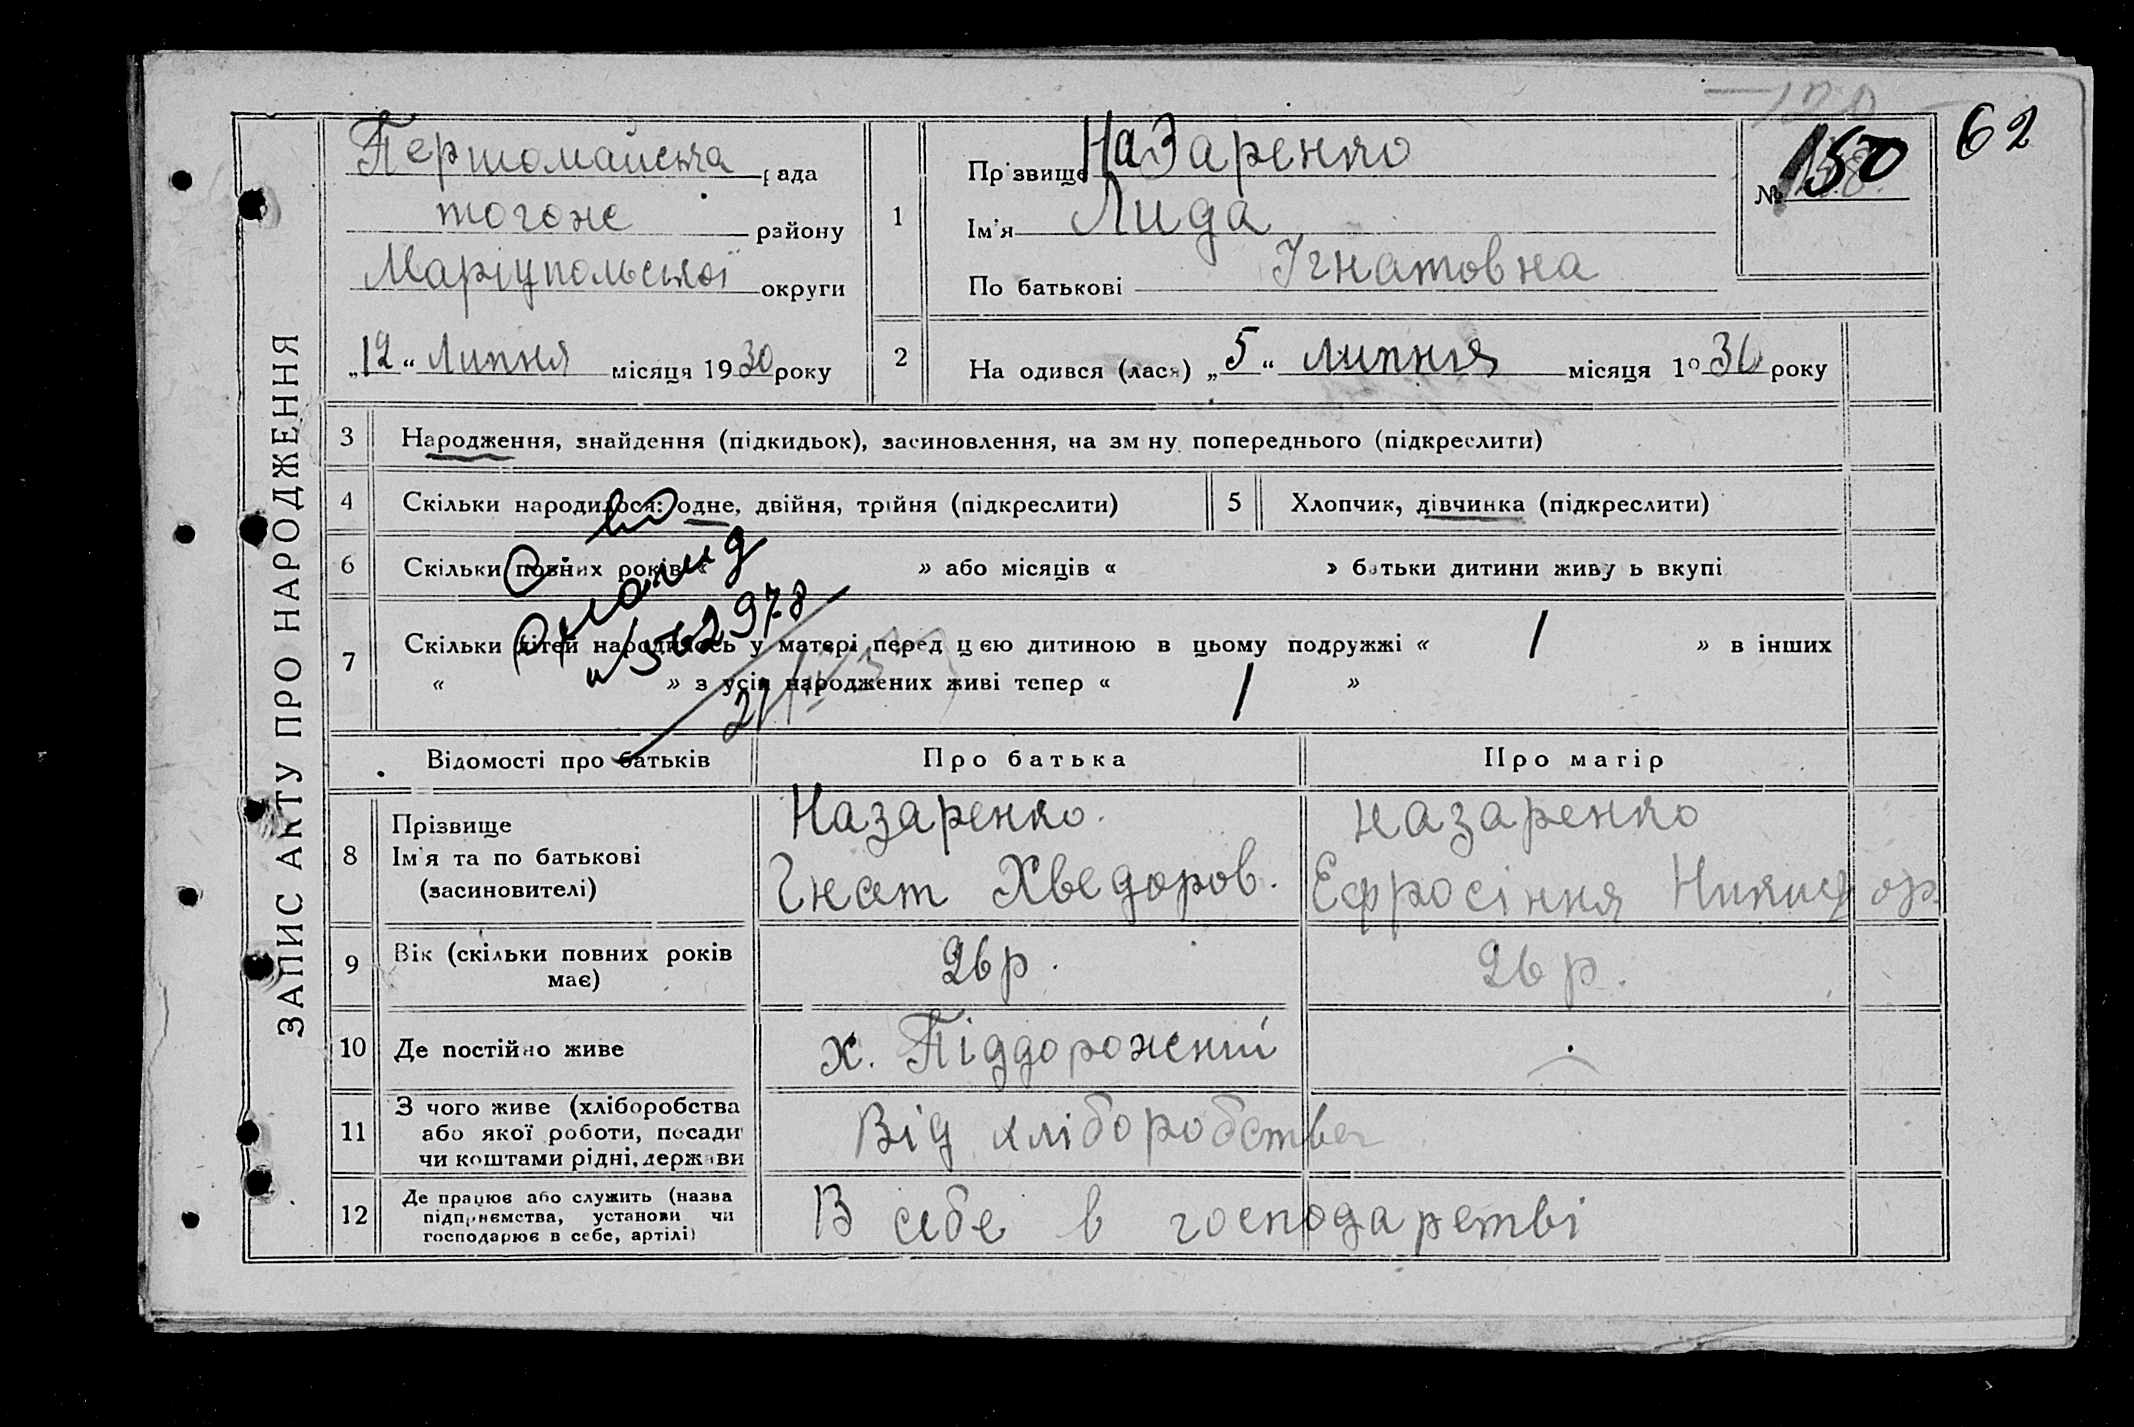 62
Першомайська рада
тогоже району
Маріупольської округи
„12“ Липня місяця 1930 року
1
Прізвище Назаренко
Ім'я Лида
По батькові Ігнатовна
№ 150
2
На одився (лася) „5“ липня місяця 1930 року
ЗАПИС АКТУ ПРО НАРОДЖЕННЯ
3 Народження, знайдення (підкидьок), засиновлення, на зм ну попереднього (підкреслити)
4 Скільки народилося: одне, двійня, трійня (підкреслити)
5 Хлопчик, дівчинка (підкреслити)
6 Скільки повних років « » або місяців « » батьки дитини живу ь вкупі
7 Скільки дітей народилось у матері перед цею дитиною в цьому подружжі « 1 » в інших
« » з усіх народжених живі тепер « 1 »
Відомості про батьків
Про батька
Про матір
8
Прізвище
Ім'я та по батькові
(засиновителі)
Назаренко
Гнат Хведоров.
Назаренко
Ефросіння Никифор
9
Вік (скільки повних років
має)
26 р.
26 р.
10 Де постійно живе
х. Піддорожний
11
З чого живе (хліборобства
або якої роботи, посади
чи коштами рідні, держави
Від хліборобства
12
Де працює або служить (назва
підприємства, установи чи
господарює в себе, артілі)
В себе в господарстві